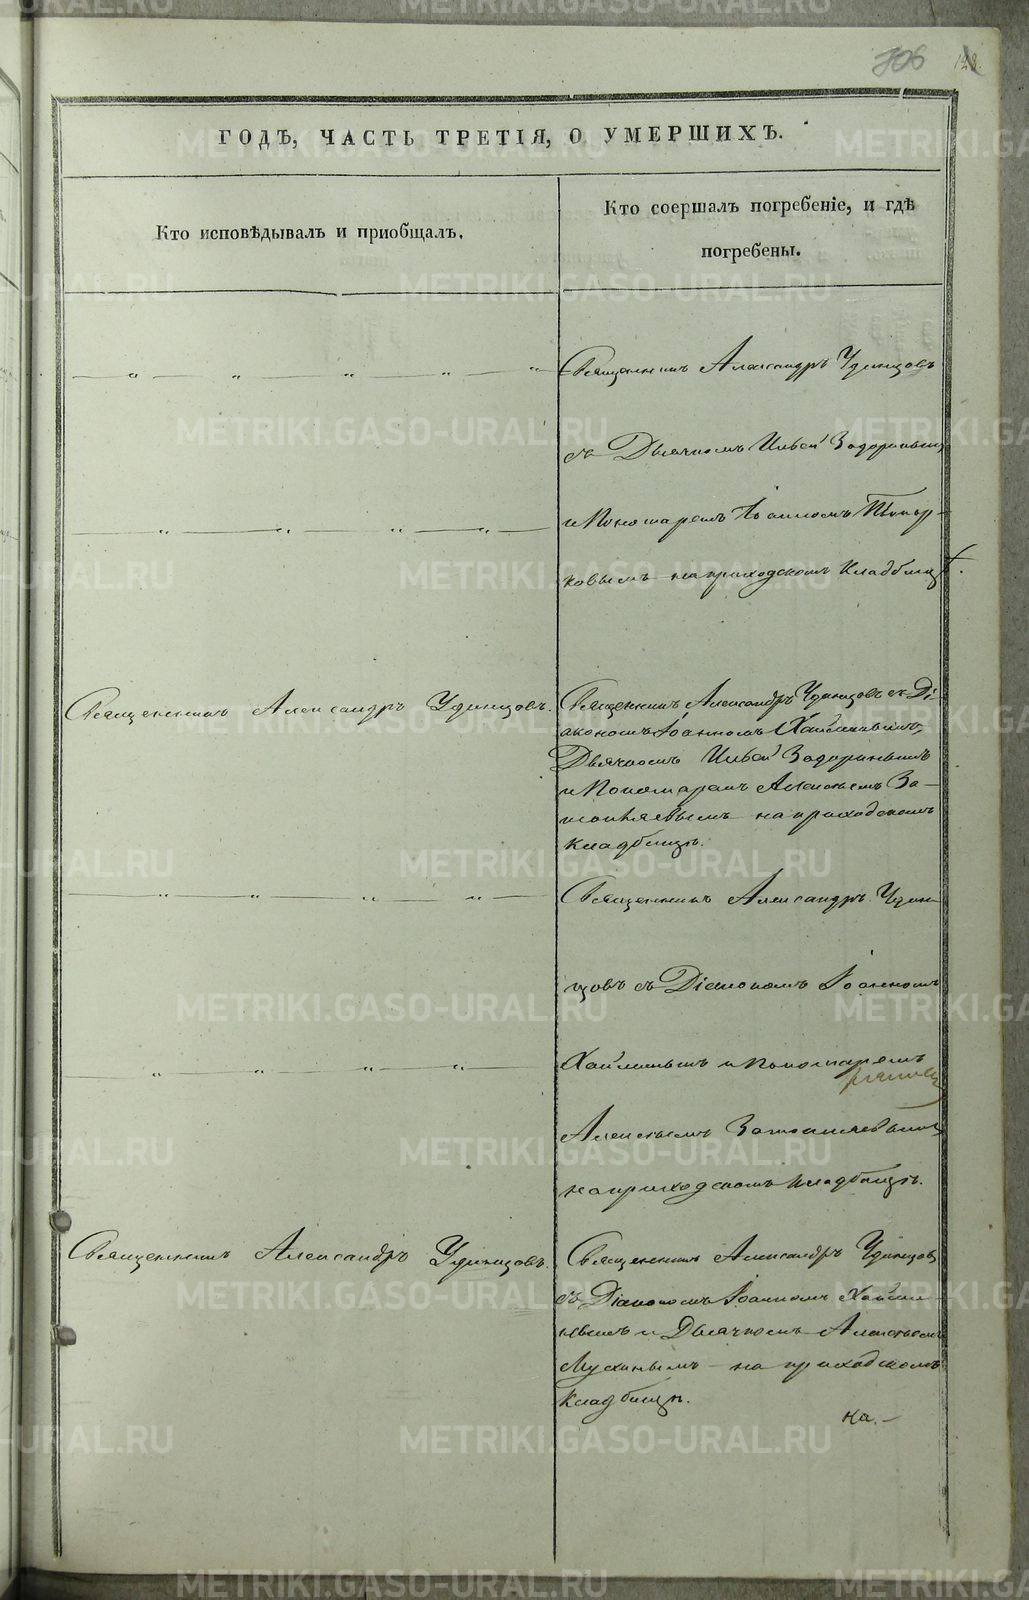 706
128.
ГОДѢ, ЧАСТЬ ТРЕТІЯ, О УМЕРШИХЪ.
Кто исповѣдывалъ и пріобщалъ.
Кто соершалъ погребеніе, и гдѣ
погребены.
Священникъ Александръ Удинцовъ
съ Дьячкомъ Іивой Задоринымъ
и Пономаремъ Іоанномъ
ковымъ на приходскомъ кладбищѣ.
Священникъ Александръ Удинцовъ.
Священникъ Александръ Удинцовъ съ Ді-
акономъ Іоанномъ Хайминымъ,
Дьячкомъ Задоринымъ
и Пономаремъ Алексѣемъ За-
на приходскомъ
кладбищѣ.
Священникъ Александръ Удин-
цовъ съ Діакономъ Іоанномъ
и Пономаремъ
Алексѣемъ
на приходскомъ кладбищѣ.
Священникъ Александръ Удинцовъ.
Священникъ Александръ Удинцовъ
съ Діакономъ Іоанномъ
нымъ и Дьячкомъ Алексѣемъ
Мухинымъ на приходскомъ
кладбищѣ.
на.
METRIKI.GASO-URAL.RU